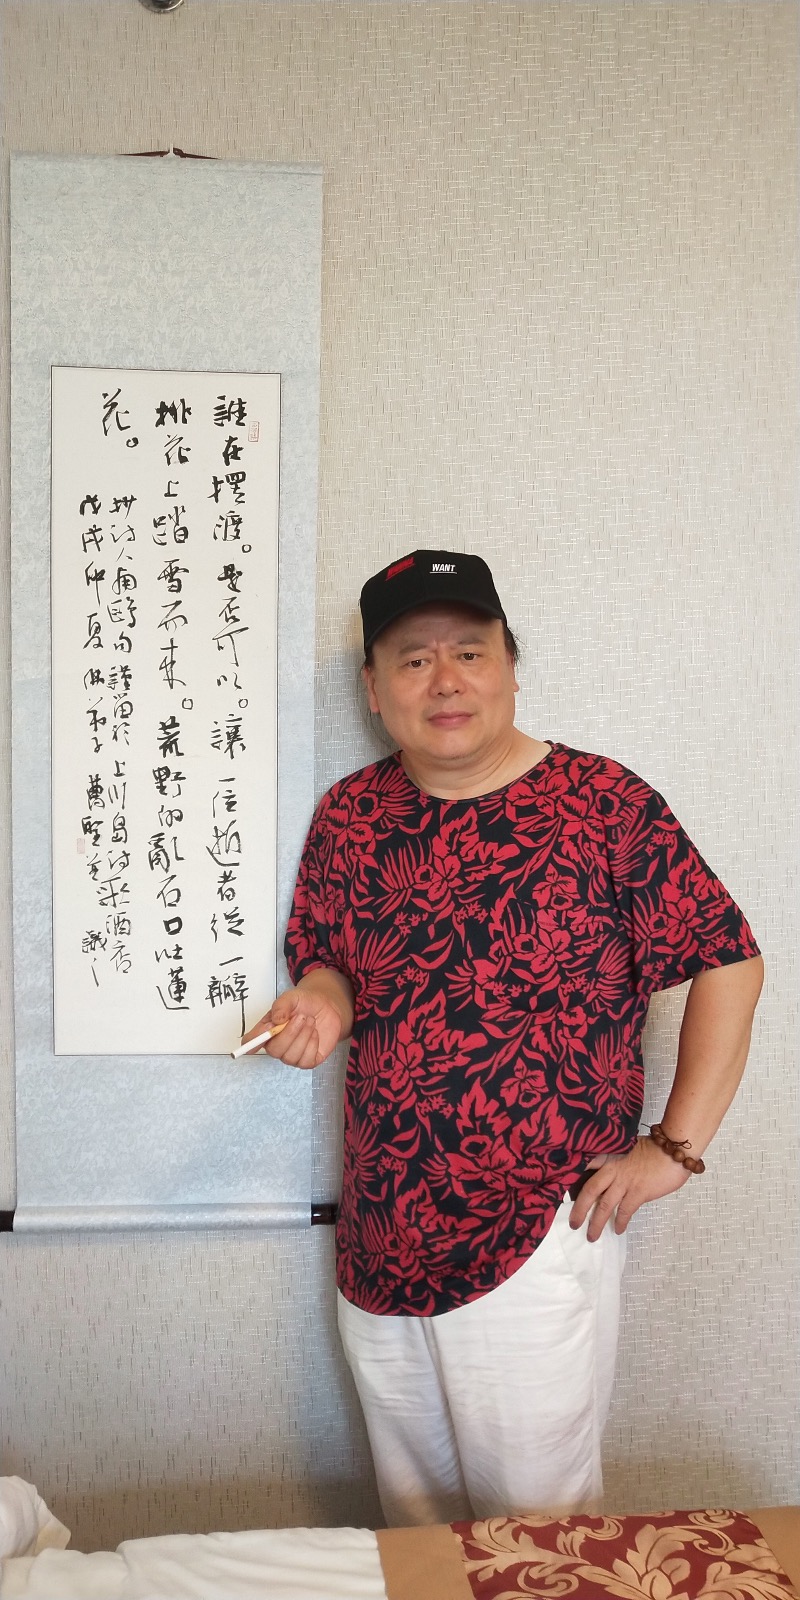 誰在擺渡。是否可以。讓一位逝者從一瓣
桃花上踏雪而来。荒野的亂石口吐蓮
花。
抄诗人南鷗句 謹留於上川島诗歌酒店
戊戌仲夏 佛弟子 曹堅
WANT